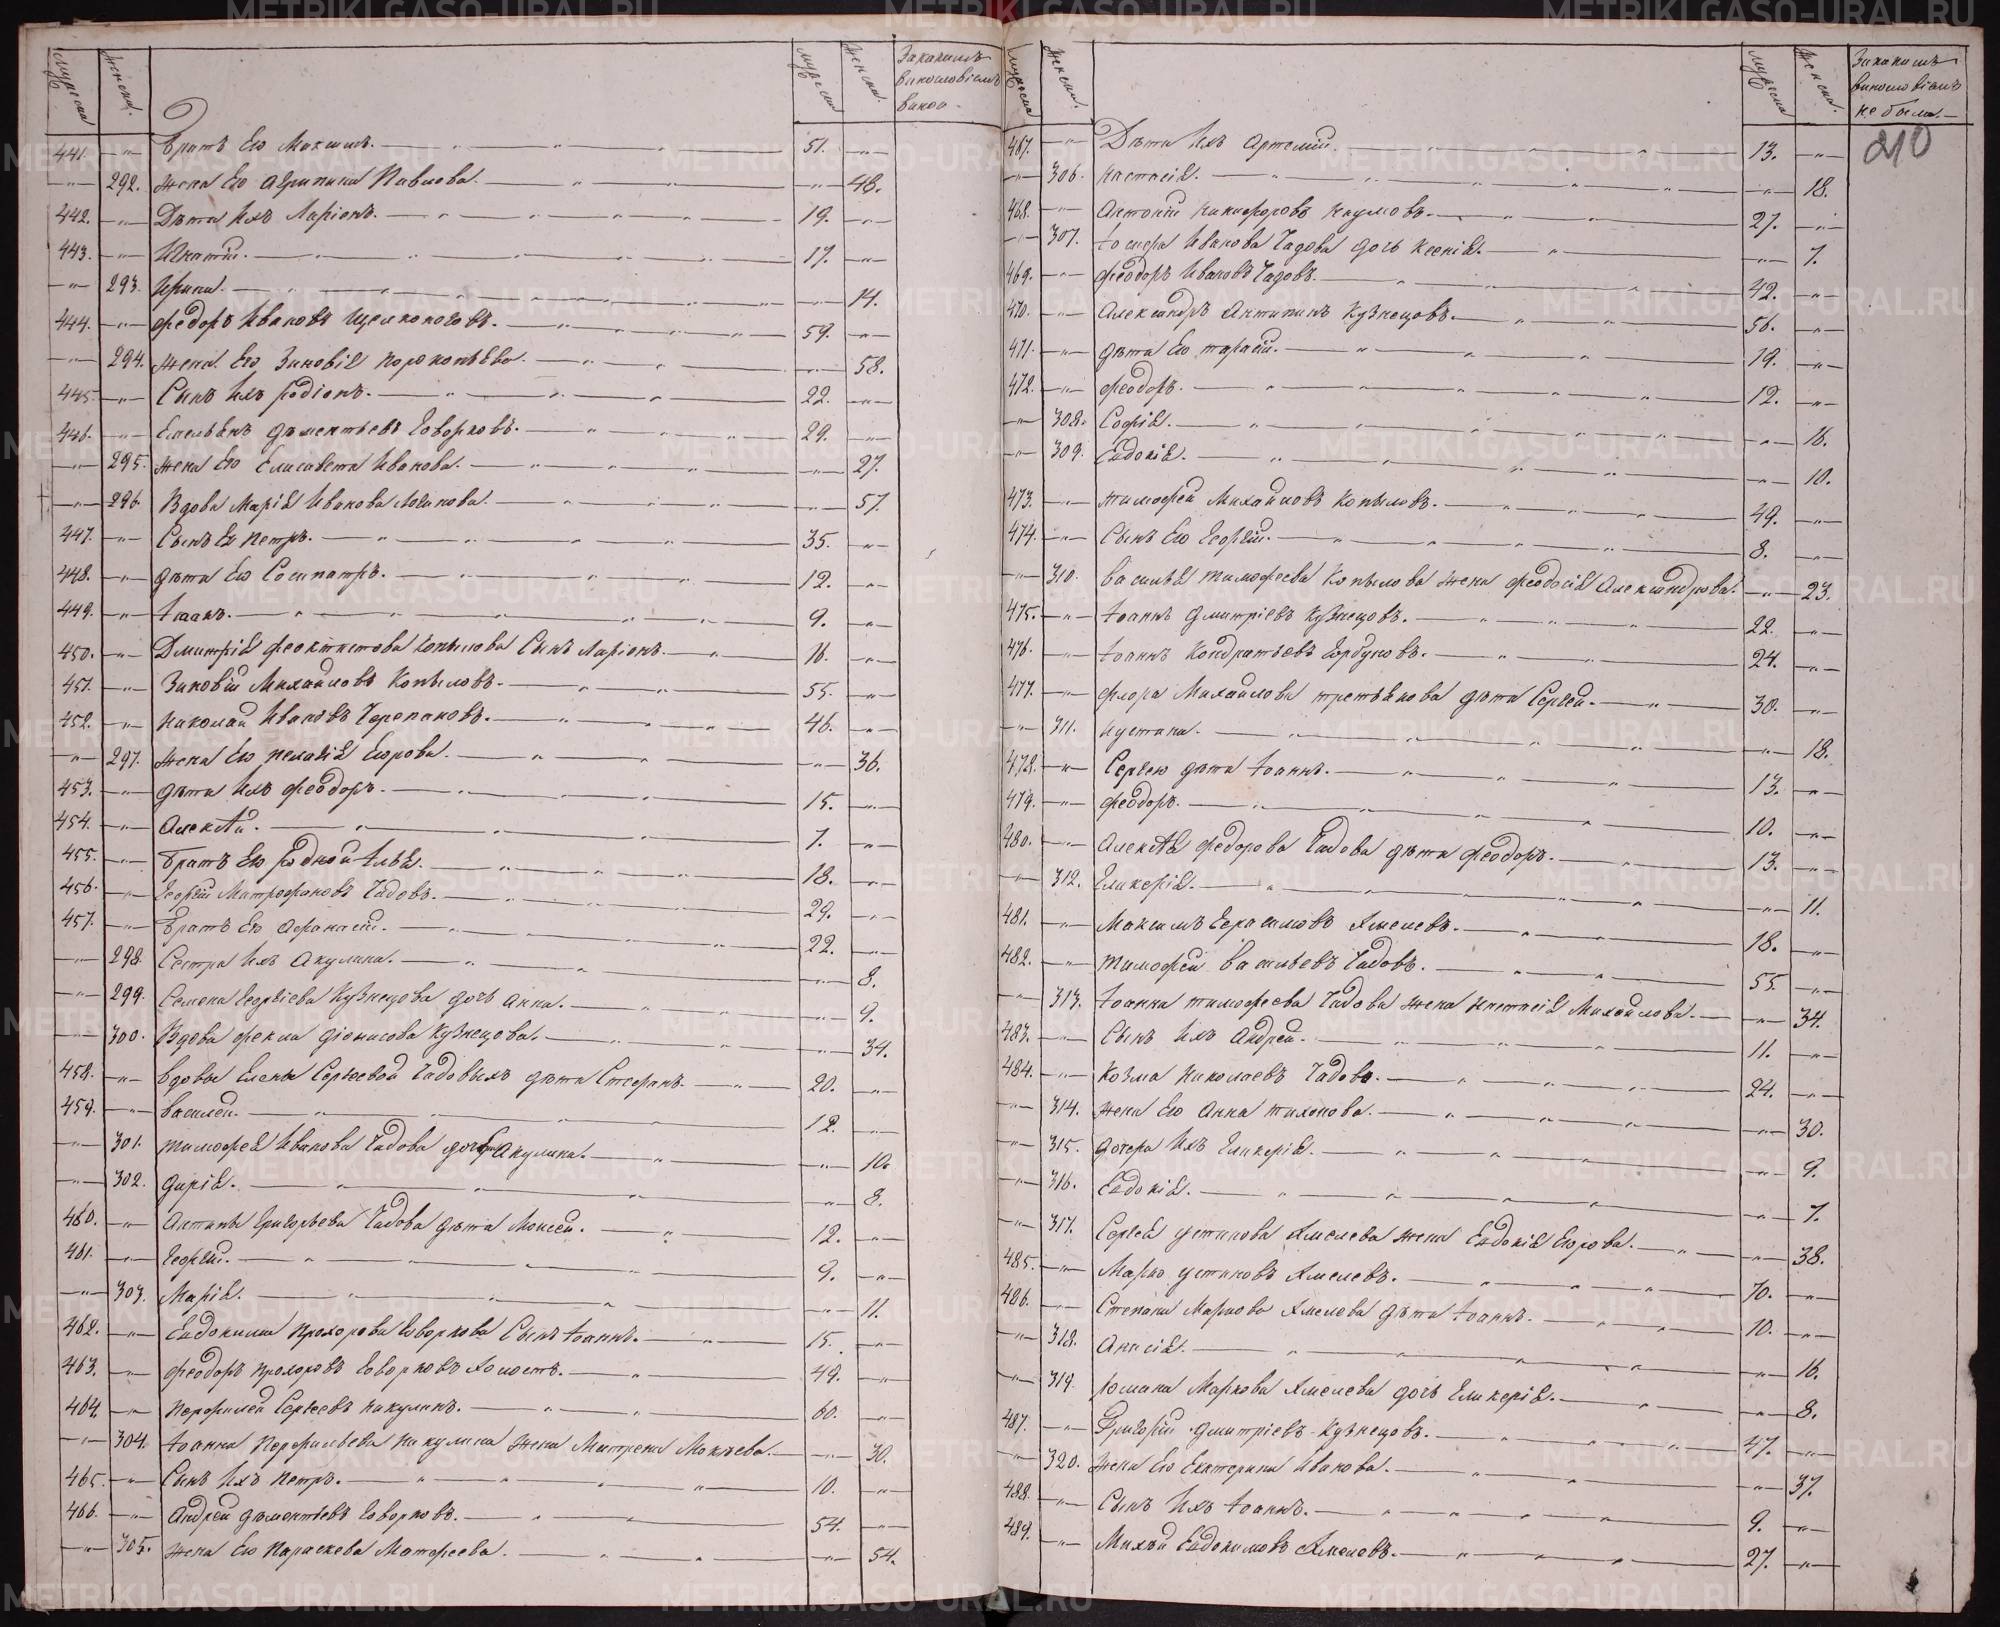 мужеска
женска
мужеска
женска
За какимъ
винословіемъ
441. Братъ Его Максимъ. 51.
292. Жена Его Агрипина Павлова. 48.
442. Дѣти Ихъ Ларіонъ. 19.
443. Игнатій. 17.
293. Ирина. 14.
444. Федоръ Ивановъ Щелконоговъ. 59.
294. Жена Его Зиновія 58.
445. Сынъ Ихъ Родіонъ. 22.
446. Емельянъ Дементьевъ Говорковъ. 29.
295. Жена Его Елисавета Иванова. 27.
296. Вдова Марія Иванова 57.
447. Сынъ Ея Петръ. 35.
448. Дѣти Его Сосипатръ. 12.
449. Іоанъ. 9.
450. Дмитрія Феоктистова Копылова Сынъ Ларіонъ. 16.
451. Зиновій Михайловъ Копыловъ. 55.
452. Николай Ивановъ Черепановъ. 46.
297. Жена Его Пелагія Егорова. 36.
453. Дѣти Ихъ Феодоръ. 15.
454. Алексѣй. 7.
455. Братъ Его родной Илья. 18.
456. Георгій Митрофановъ Чадовъ. 29.
457. Братъ Его Афанасій. 22.
298. Сестра Ихъ Акулина. 8.
299. Семена Георгіева Кузнецова дочь Анна. 9.
300. Вдова Фекла Діонисова Кузнецова. 34.
458. Вдовы Елены Сергеевой Чадовыхъ дѣти Стефанъ. 20.
459. Василей. 12.
301. Тимофея Иванова Чадова дочери Акулина. 10.
302. Дарія. 8.
460. Антипы Григорьева Чадова дѣти Моисей. 12.
461. Георгій. 9.
303. Марія. 11.
462. Евдокима Прохорова Говоркова Сынъ Іоаннъ. 15.
463. Феодоръ Прохоровъ Говорковъ Холостъ. 49.
464. Перфилей Сергеевъ Никулинъ. 60.
304. Іоанна Перфильева Никулина Жена Матрена Мокѣева. 30.
465. Сынъ Ихъ Петръ. 10.
466. Андрей Дементьевъ Говорковъ. 54.
305. Жена Его Параскева Матфеева. 54.
мужеска
женска
мужеска
женска
За какимъ
винословіемъ
не были.
210
467. Дѣти Ихъ Артемій. 13.
306. Настасія. 18.
468. Антоній Никифоровъ Наумовъ. 27.
307. Іосифа Иванова Чадова дочь Ксенія. 7.
469. Феодоръ Ивановъ Чадовъ. 42.
470. Александръ Антипинъ Кузнецовъ. 56.
471. Дѣти Его Тарасій. 19.
472. Феодоръ. 12.
308. Софія. 16.
309. Евдокія. 10.
473. Тимофей Михайловъ Копыловъ. 49.
474. Сынъ Его Георгій. 8.
310. Василья Тимофеева Копылова Жена Феодосія Александрова. 23.
475. Іоаннъ Дмитріевъ Кузнецовъ. 22.
476. Іоаннъ Кондратьевъ Горбуновъ. 24.
477. Флора Михайлова Третьякова дѣти Сергей. 30.
311. Иустина. 18.
478. Сергею дѣти Іоаннъ. 13.
479. Феодоръ. 10.
480. Алексѣя Федорова Чадова дѣти Феодоръ. 13.
312. Гликерія. 11.
481. Максимъ Герасимовъ Хмелевъ. 18.
482. Тимофей Васильевъ Чадовъ. 55.
313. Іоанна Тимофеева Чадова жена Настасія Михайлова. 34.
483. Сынъ Ихъ Андрей. 11.
484. Козма Николаевъ Чадовъ. 24.
314. Жена Его Анна Тихонова. 30.
315. Дочери Ихъ Гликерія. 9.
316. Евдокія. 7.
317. Сергея Устинова Хмелева жена Евдокія Егорова. 38.
485. Марко Устиновъ Хмелевъ. 70.
486. Степана Маркова Хмелева дѣти Іоаннъ. 10.
318. Анисія. 16.
319. Маркова Хмелева дочь Гликерія. 8.
487. Григорій Дмитріевъ Кузнецовъ. 47.
320. Жена Его Екатерина Иванова. 37.
488. Сынъ Ихъ Іоаннъ. 9.
489. Михѣй Евдокимовъ Хмелевъ. 27.
METRIKI.GASO-URAL.RU